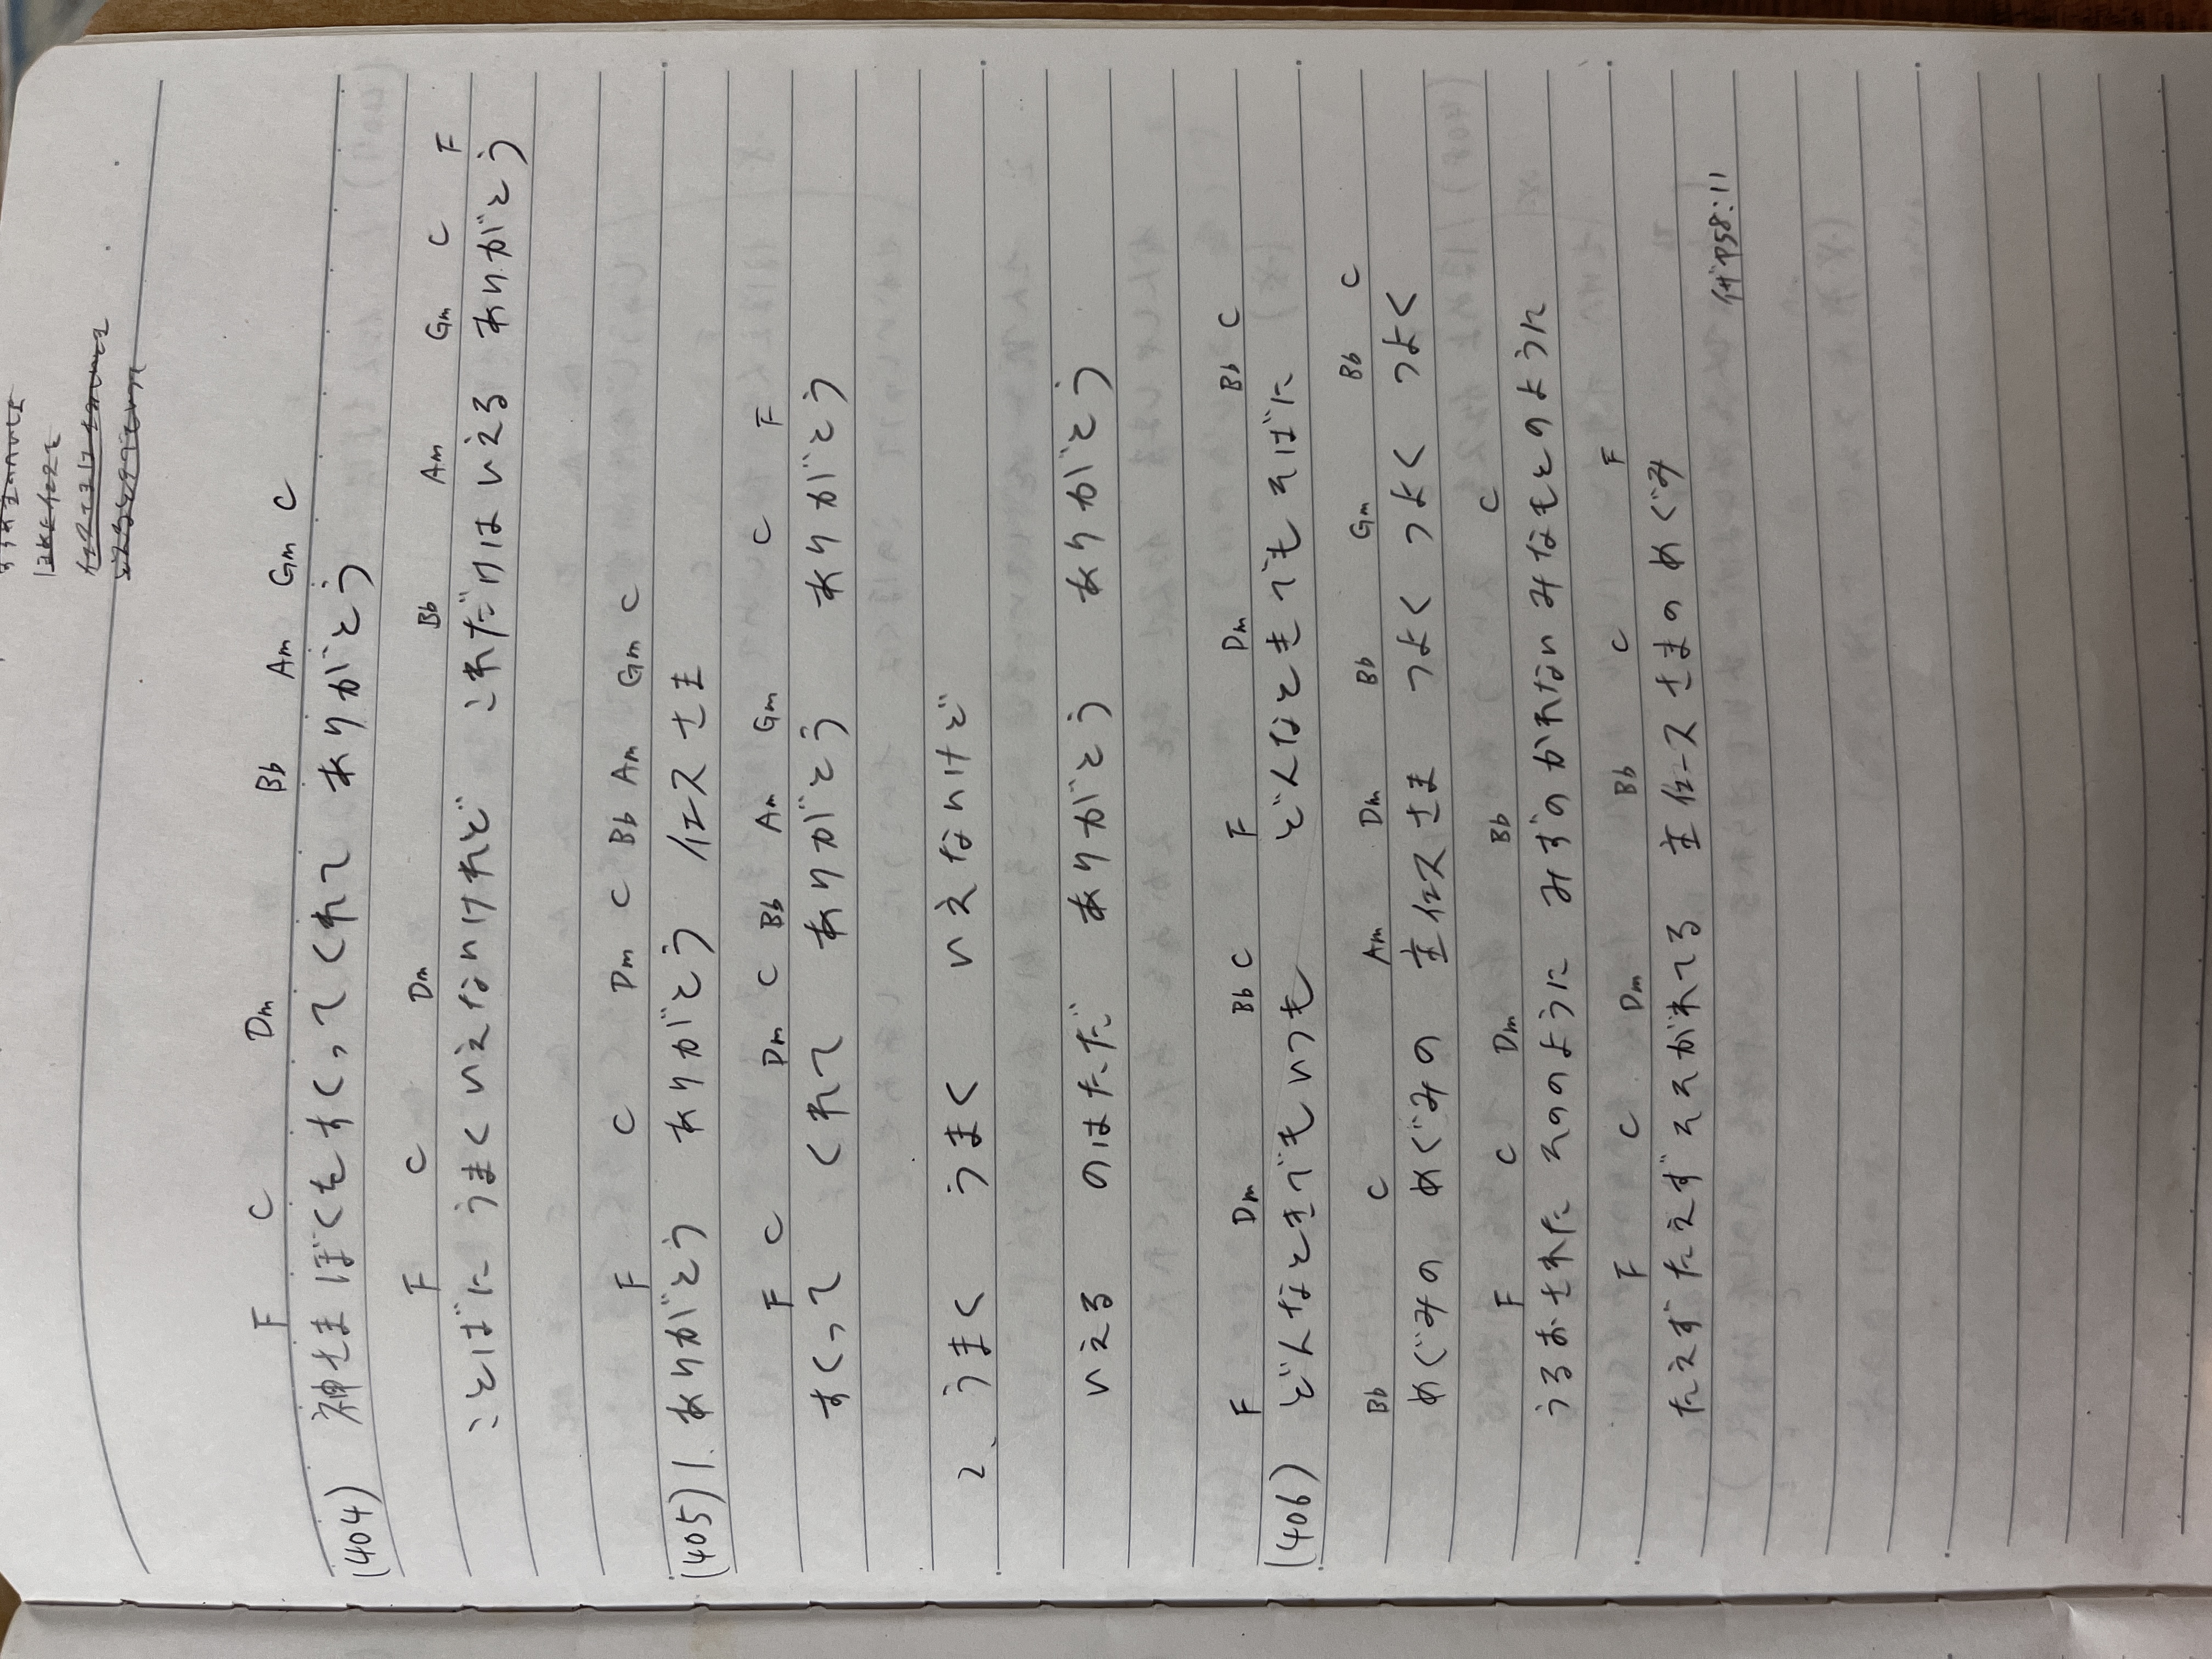 F C Dm Bb Am Gm C
(404) 神さま ぼくを すくってくれて ありがとう
F C Dm Bb Am Gm C F
ことばに うまく いえないけれど これだけは いえる ありがとう
F C Dm C Bb Am Gm C
(405) 1. ありがとう ありがとう イエスさま
F C Dm C Bb Am Gm C F
すくって くれて ありがとう ありがとう
2、 うまく うまく いえないけど
いえる のはただ ありがとう ありがとう
F Dm Bb C F Dm Bb C
(406) どんなときでもいつも どんなときでもそばに
Bb C Am Dm Bb Gm Bb C
めぐみの めぐみの 主イエスさま つよく つよく つよく
F C Dm Bb C
うるおされた そののように みずのかれないみなもとのように
F C Dm Bb C F
たえず たえず そそがれてる 主イエスさまのめぐみ
イザヤ58:11